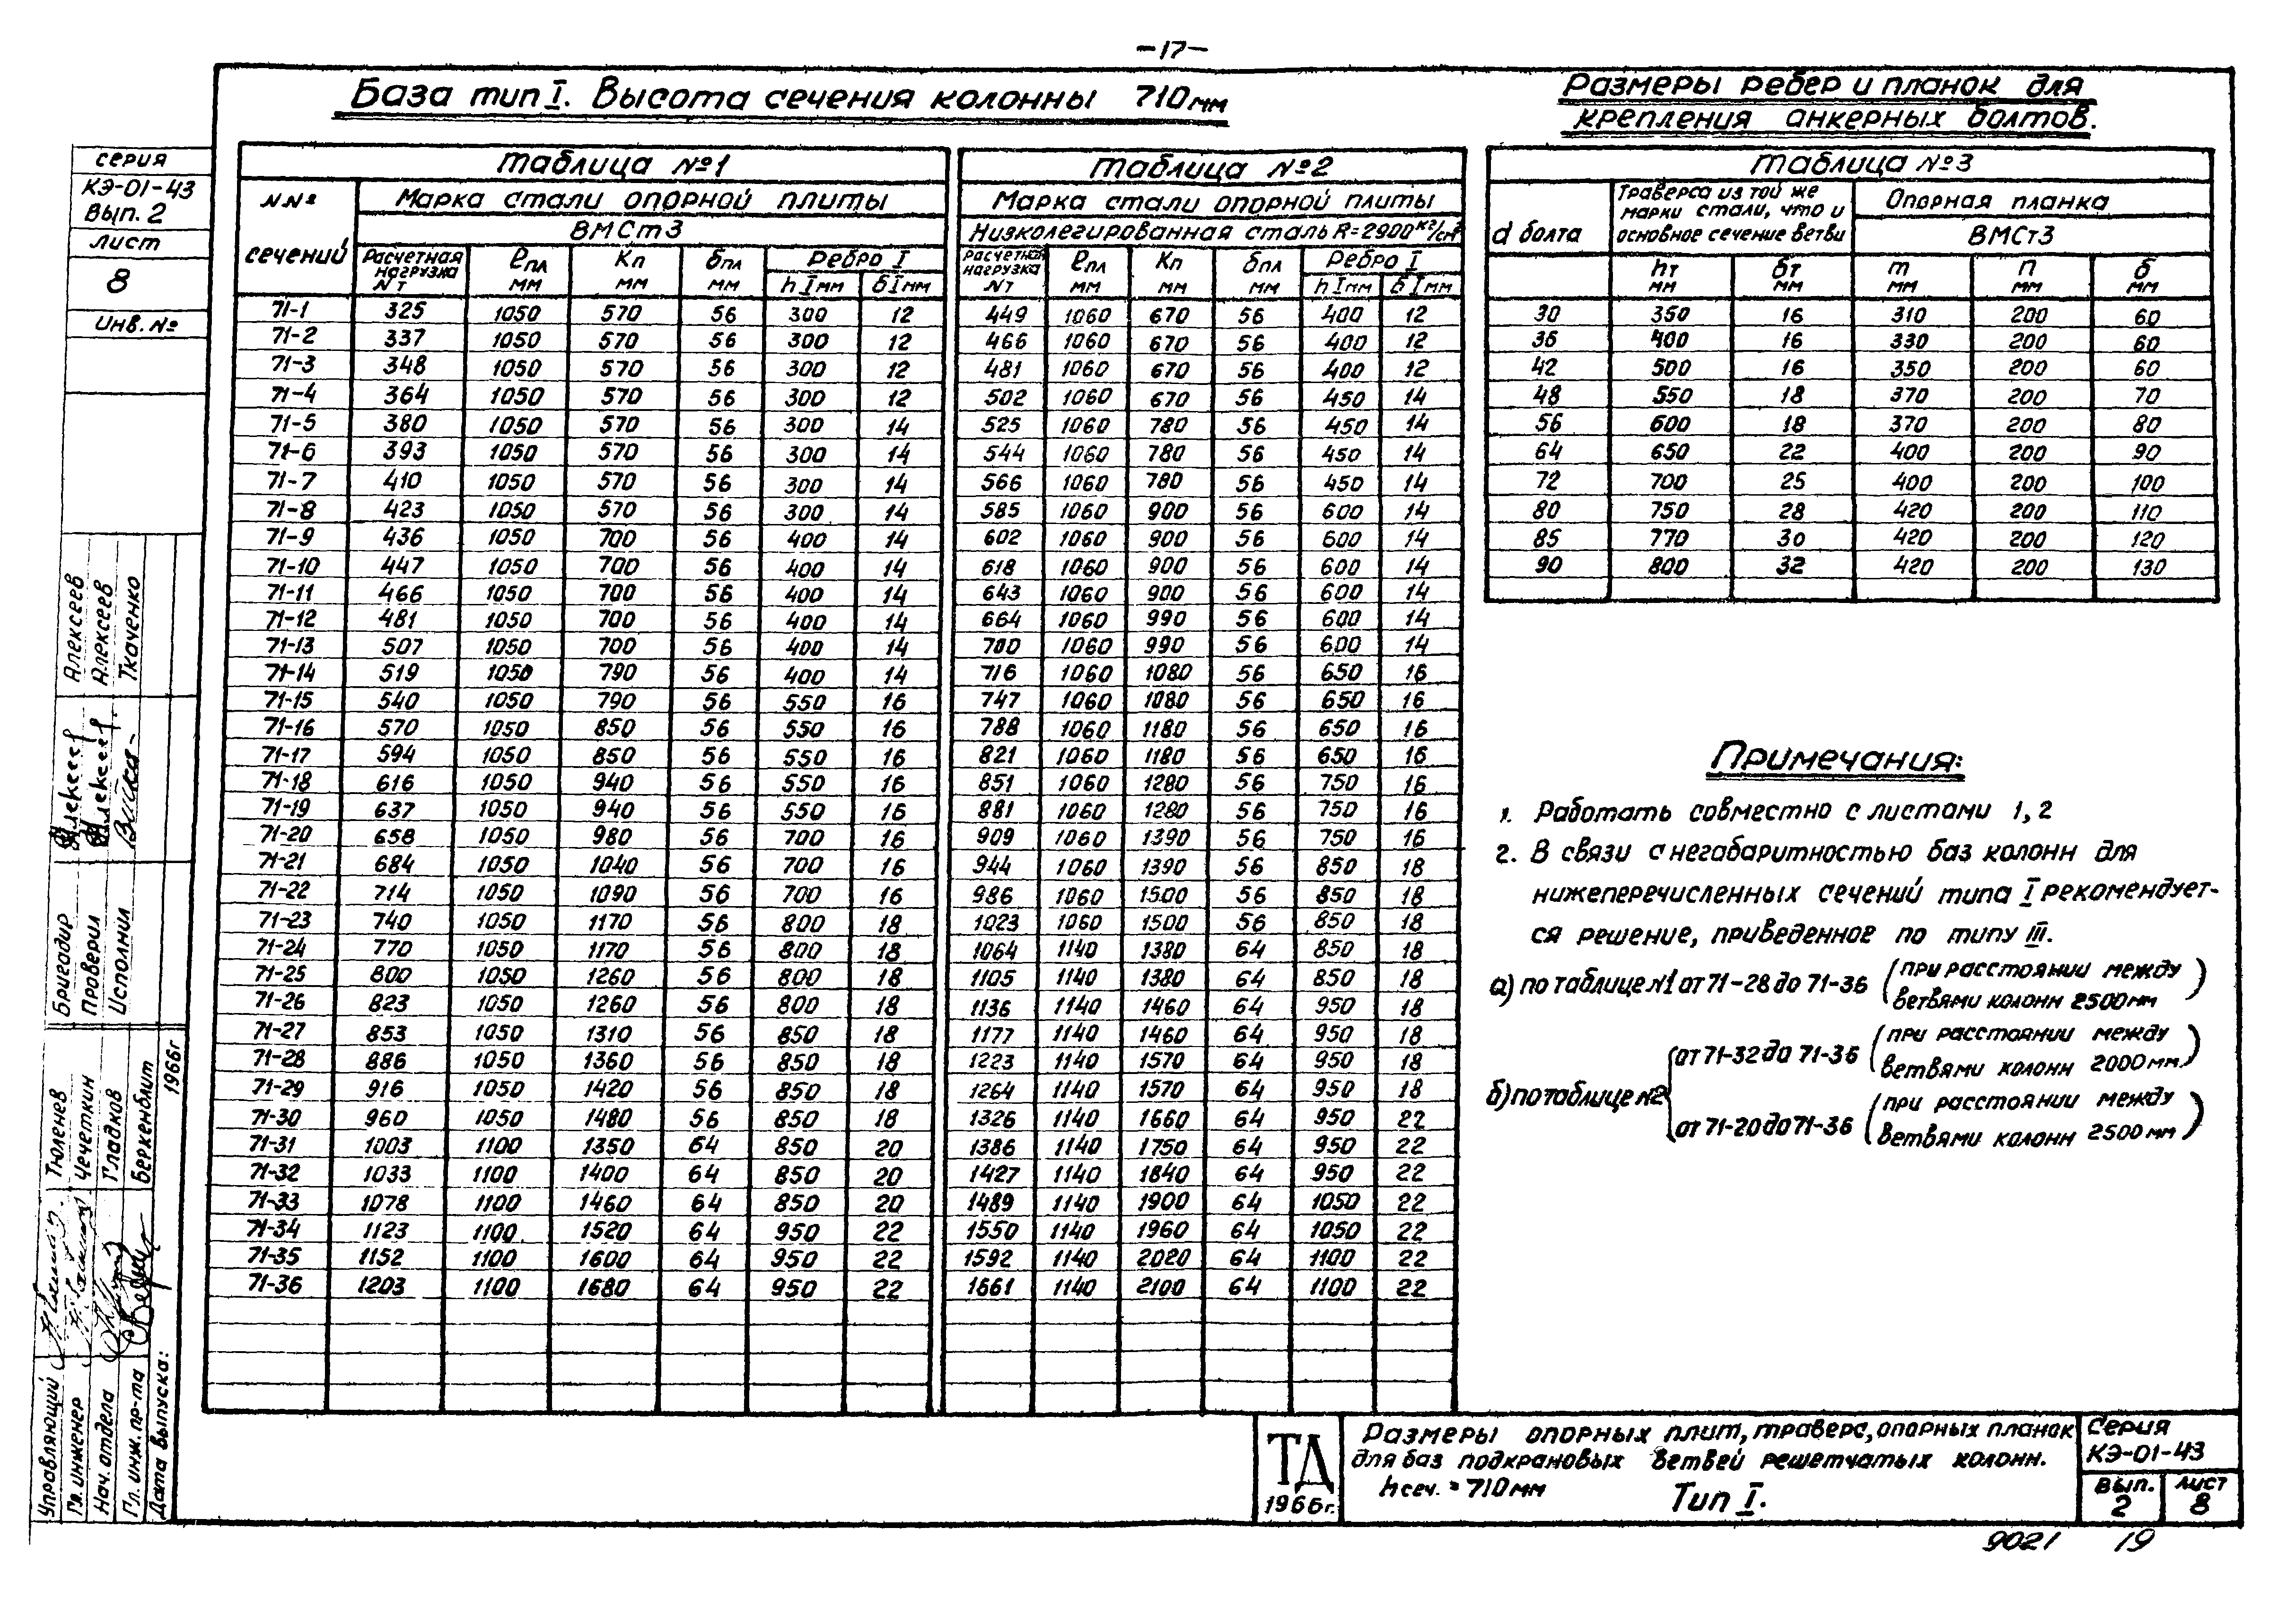 -17-
База тип I. Высота сечения колонны 710мм
Размеры ребер и планок для
крепления анкерных болтов.
серия
КЭ-01-43
Вып. 2
лист
8
Инв. №
Таблица №1
N№ сечений
Марка стали опорной плиты
ВМСт3
Расчетная нагрузка Nт | ℓпл мм | Кп мм | δпл мм | Ребро I
h I мм | δ I мм
71-1 325 1050 570 56 300 12
71-2 337 1050 570 56 300 12
71-3 348 1050 570 56 300 12
71-4 364 1050 570 56 300 12
71-5 380 1050 570 56 300 14
71-6 393 1050 570 56 300 14
71-7 410 1050 570 56 300 14
71-8 423 1050 570 56 300 14
71-9 436 1050 700 56 400 14
71-10 447 1050 700 56 400 14
71-11 466 1050 700 56 400 14
71-12 481 1050 700 56 400 14
71-13 507 1050 700 56 400 14
71-14 519 1050 790 56 400 14
71-15 540 1050 790 56 550 16
71-16 570 1050 850 56 550 16
71-17 594 1050 850 56 550 16
71-18 616 1050 940 56 550 16
71-19 637 1050 940 56 550 16
71-20 658 1050 980 56 700 16
71-21 684 1050 1040 56 700 16
71-22 714 1050 1090 56 700 16
71-23 740 1050 1170 56 800 18
71-24 770 1050 1170 56 800 18
71-25 800 1050 1260 56 800 18
71-26 823 1050 1260 56 800 18
71-27 853 1050 1310 56 850 18
71-28 886 1050 1360 56 850 18
71-29 916 1050 1420 56 850 18
71-30 960 1050 1480 56 850 18
71-31 1003 1100 1350 64 850 20
71-32 1033 1100 1400 64 850 20
71-33 1078 1100 1460 64 850 20
71-34 1123 1100 1520 64 950 22
71-35 1152 1100 1600 64 950 22
71-36 1203 1100 1680 64 950 22
Таблица №2
Марка стали опорной плиты
Низколегированная сталь R=2900кг/см²
Расчетная нагрузка Nт | ℓпл мм | Кп мм | δпл мм | Ребро I
h I мм | δ I мм
449 1060 670 56 400 12
466 1060 670 56 400 12
481 1060 670 56 400 12
502 1060 670 56 450 14
525 1060 780 56 450 14
544 1060 780 56 450 14
566 1060 780 56 450 14
585 1060 900 56 600 14
602 1060 900 56 600 14
618 1060 900 56 600 14
643 1060 900 56 600 14
664 1060 990 56 600 14
700 1060 990 56 600 14
716 1060 1080 56 650 16
747 1060 1080 56 650 16
788 1060 1180 56 650 16
821 1060 1180 56 650 16
851 1060 1280 56 750 16
881 1060 1280 56 750 16
909 1060 1390 56 750 16
944 1060 1390 56 850 18
986 1060 1500 56 850 18
1023 1060 1500 56 850 18
1064 1140 1380 64 850 18
1105 1140 1380 64 850 18
1136 1140 1460 64 950 18
1177 1140 1460 64 950 18
1223 1140 1570 64 950 18
1264 1140 1570 64 950 18
1326 1140 1660 64 950 22
1386 1140 1750 64 950 22
1427 1140 1840 64 950 22
1489 1140 1900 64 1050 22
1550 1140 1960 64 1050 22
1592 1140 2020 64 1100 22
1661 1140 2100 64 1100 22
Таблица №3
d болта
Траверса из той же
марки стали, что и
основное сечение ветви
Опорная планка
ВМСт3
hт мм | δт мм | m мм | п мм | δ мм
30 350 16 310 200 60
36 400 16 330 200 60
42 500 16 350 200 60
48 550 18 370 200 70
56 600 18 370 200 80
64 650 22 400 200 90
72 700 25 400 200 100
80 750 28 420 200 110
85 770 30 420 200 120
90 800 32 420 200 130
Примечания:
1. Работать совместно с листами 1, 2
2. В связи с негабаритностью баз колонн для
нижеперечисленных сечений типа I рекомендует-
ся решение, приведенное по типу III.
а) по таблице №1 от 71-28 до 71-36 (при расстоянии между
ветвями колонн 2500мм)
б) по таблице №2
от 71-32 до 71-36 (при расстоянии между
ветвями колонн 2000мм.)
от 71-20 до 71-36 (при расстоянии между
ветвями колонн 2500мм)
Бригадир Алексеев
Проверил Алексеев
Исполнил Ткаченко
Управляющий Тюленев
Гл. инженер Чечеткин
Нач. отдела Гладков
Гл. инж. пр-та Беркенблит
Дата выпуска: 1966г
ТД
1966г.
Размеры опорных плит, траверс, опорных планок
для баз подкрановых ветвей решетчатых колонн.
hсеч. = 710мм
Тип I.
Серия
КЭ-01-43
Вып.
2
лист
8
9021 19